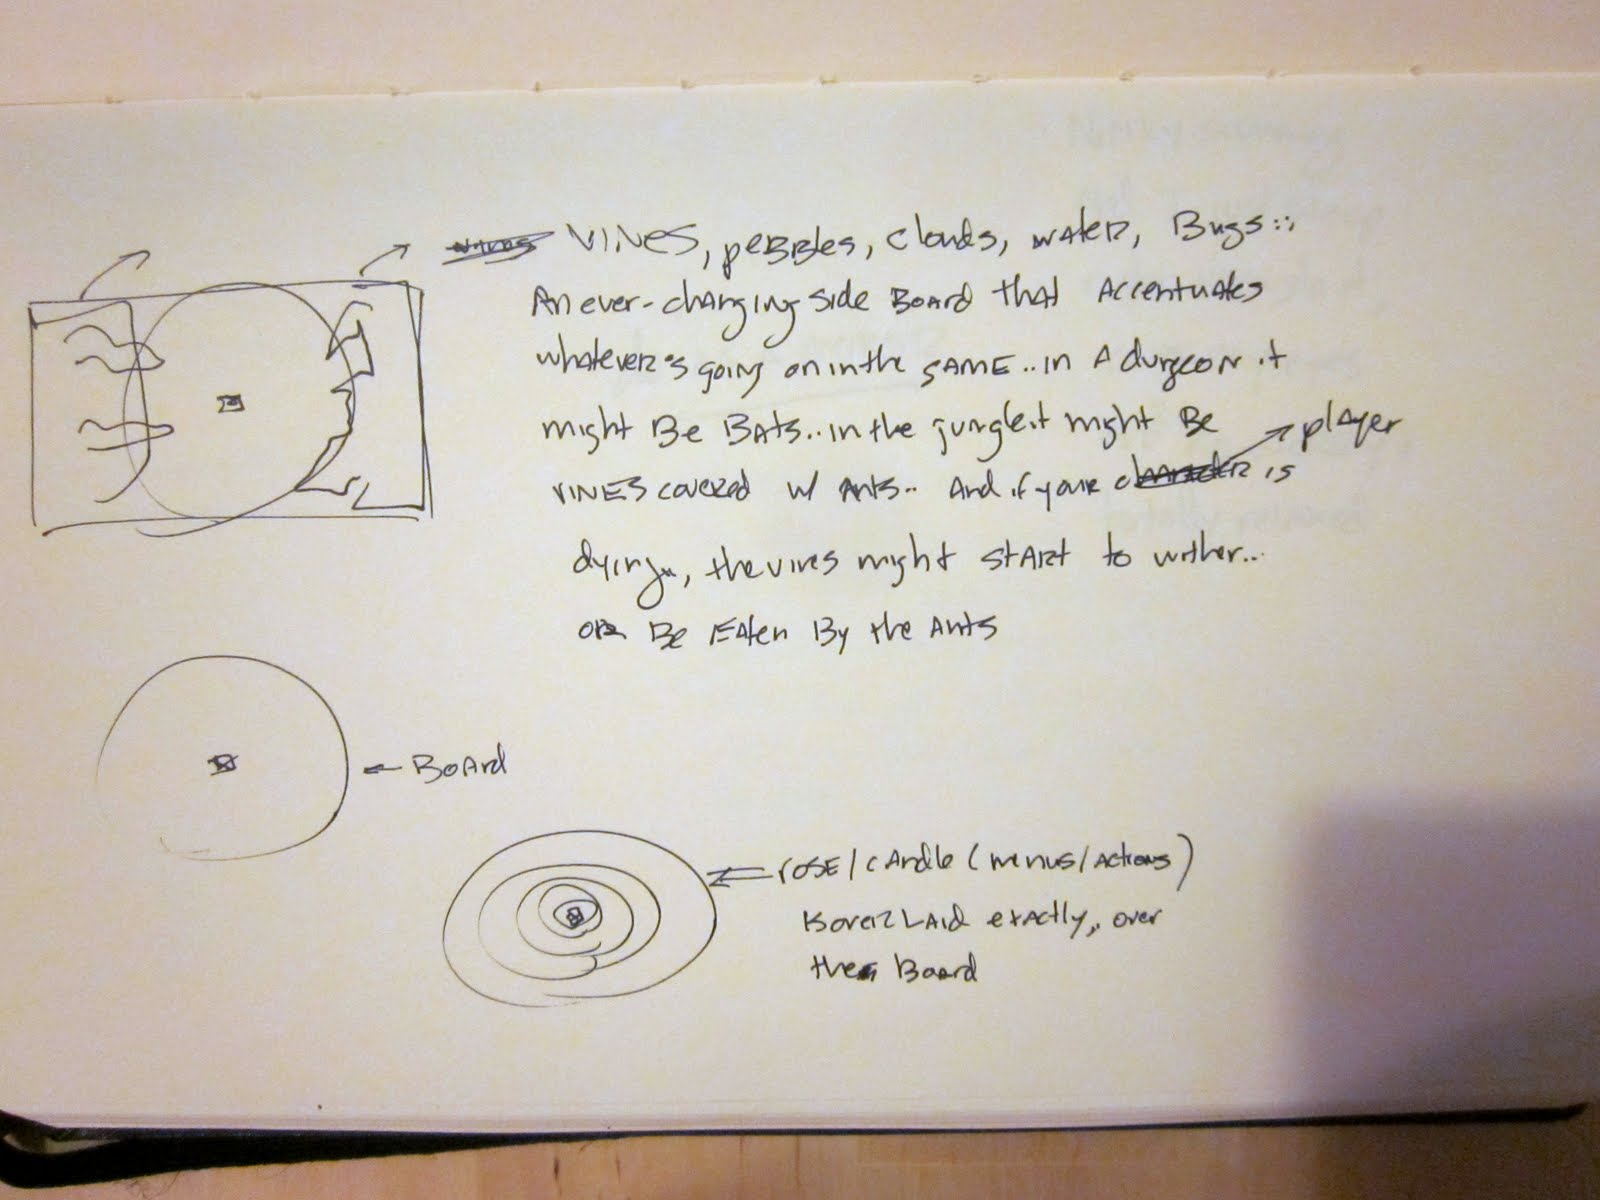 VINES, peBBles, clouds, water, Bugs::
An ever-changing side Board that Accentuates
whatever's going on in the GAME.. in A dungeon it
might Be BAts.. in the jungle it might Be
player
VINES covered w/ Ants.. And if your character is
dying, the vines might stArt to wither...
or Be EAten By the Ants
BoArd
rose/cAndle (menus/Actions)
is overlAid exActly, over
the BoArd